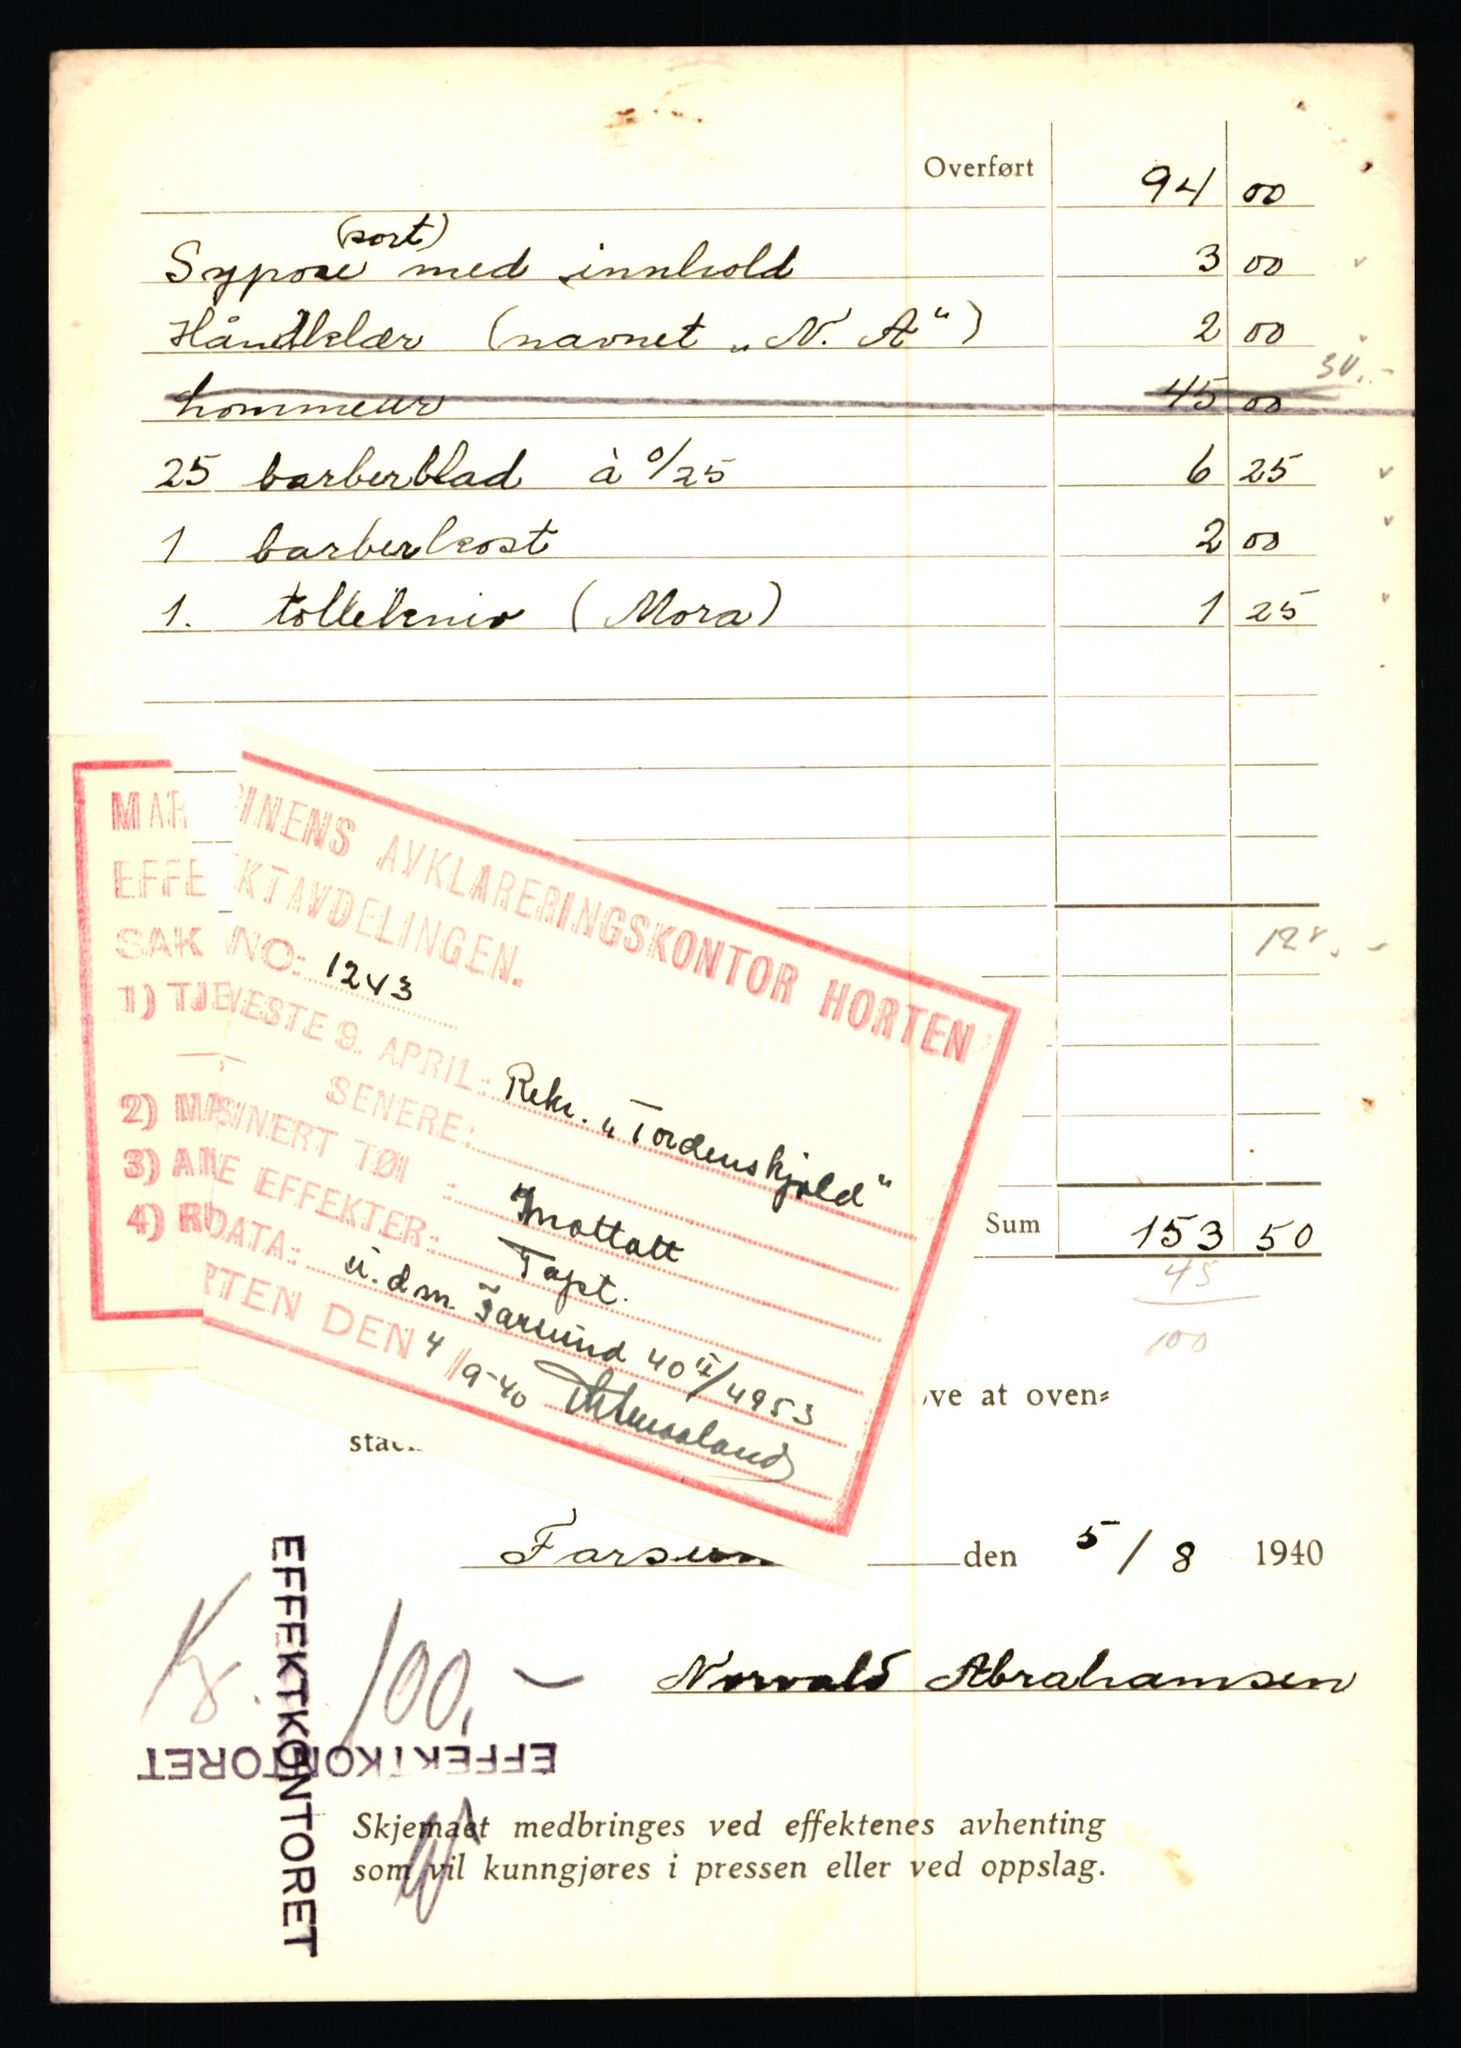 Overført 94 00
(sort)
Sypose med innhold 3 00
Håndklær (navnet „N. A“) 2 00
30.-
hommeur 45 00
25 barberblad à 0/25 6 25
1 barberkost 2 00
1. tollekniv (Mora) 1 25
MARINENS AVKLARERINGSKONTOR HORTEN
EFFEKTAVDELINGEN.
SAK NO: 1243
1) TJENESTE 9. APRIL: Rekr. „Tordenskjold“
SENERE:
2) MASINERT TØI: Mottatt
3) ANE EFFEKTER: Tapt.
4) RDATA: ú.dm. Farsund 40 II/4953
RTEN DEN 4/9-40
128.-
Sum 153 50
45
100
ve at oven=
Farsun den 5/8 1940
Kr. 100,-
Norvald Abrahamsen
EFFEKTKONTORET
EFFEKTKONTORET
Skjemaet medbringes ved effektenes avhenting
som vil kunngjøres i pressen eller ved oppslag.